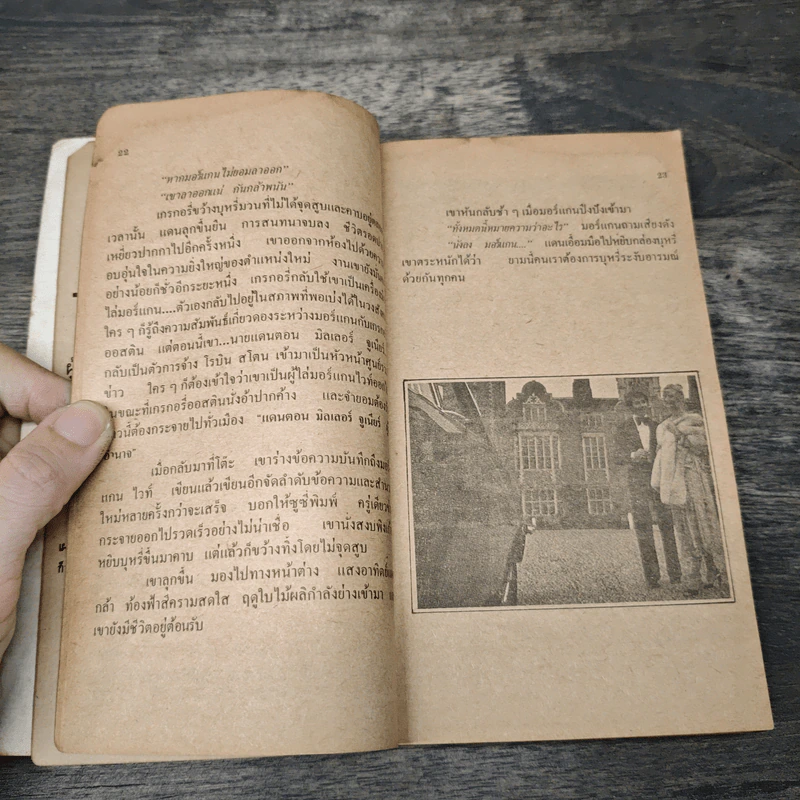 22
"หากมอร์แกนไม่ยอมลาออก"
"เขาลาออกแน่ กันกล้าพนัน"
เกรกอรี่ขว้างบุหรี่มวนที่ไม่ได้จุดสูบและคาบอยู่
เวลานั้น แดนลุกขึ้นยืน การสนทนาจบลง ชีวิตรอด
เหยี่ยวปากกาไปอีกครั้งหนึ่ง เขาออกจากห้องไปด้วย
อบอุ่นใจในความยิ่งใหญ่ของตำแหน่งใหม่ งานเขายังมั่น
อย่างน้อยก็ชั่วอีกระยะหนึ่ง เกรกอรี่กลับใช้เขาเป็นเครื่อง
ไล่มอร์แกน....ตัวเองกลับไปอยู่ในสภาพที่พอเบ่งได้ในวง
ใคร ๆ ก็รู้ถึงความสัมพันธ์เกี่ยวดองระหว่างมอร์แกนกับเกรก
ออสติน แต่ตอนนี้เขา...นายแดนตอน มิลเลอร์ จูเนียร์
กลับเป็นตัวการจ้าง โรบิน สโตน เข้ามาเป็นหัวหน้าศูนย์
ข่าว ใคร ๆ ก็ต้องเข้าใจว่าเขาเป็นผู้ไล่มอร์แกนไวท์ออก
ขณะที่เกรกอรี่ออสตินนั่งอ้าปากค้าง และจำยอมต้อง
นี้ต้องกระจายไปทั่วเมือง "แดนตอน มิลเลอร์ จูเนียร์
อำนาจ"
เมื่อกลับมาที่โต๊ะ เขาร่างข้อความบันทึกถึงมอร์
แกน ไวท์ เขียนแล้วเขียนอีกจัดลำดับข้อความและสำนวน
ใหม่หลายครั้งกว่าจะเสร็จ บอกให้ซูซี่พิมพ์ ครู่เดียว
กระจายออกไปรวดเร็วอย่างไม่น่าเชื่อ เขานั่งสงบ
หยิบบุหรี่ขึ้นมาคาบ แต่แล้วก็ขว้างทิ้งโดยไม่จุดสูบ
เขาลุกขึ้น มองไปทางหน้าต่าง แสงอาทิตย์
กล้า ท้องฟ้าสีครามสดใส ฤดูใบไม้ผลิกำลังย่างเข้ามา
เขายังมีชีวิตอยู่ต้อนรับ
23
เขาหันกลับช้า ๆ เมื่อมอร์แกนปึงปังเข้ามา
"ทั้งหมดนี้หมายความว่าอะไร" มอร์แกนถามเสียงดัง
"นั่งลง มอร์แกน...." แดนเอื้อมมือไปหยิบกล่องบุหรี่
เขาตระหนักได้ว่า ยามนี้คนเราต้องการบุหรี่ระงับอารมณ์
ด้วยกันทุกคน